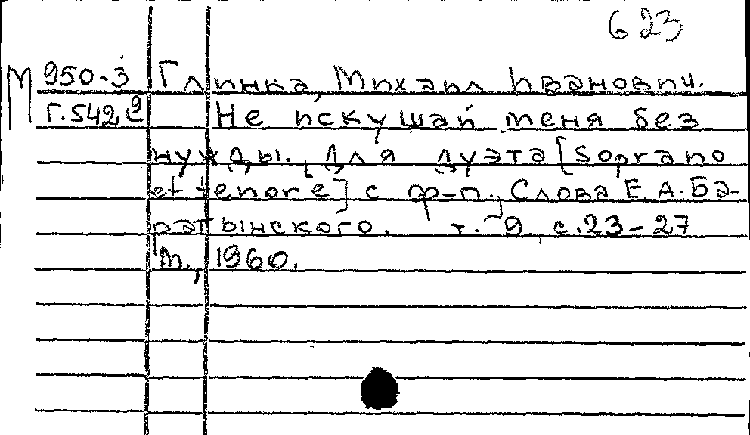 623
М 950-3 Глинка, Михаил Иванович.
Г.542 Не искушай меня без
нужды. Для дуэта [Soprano
et tenore] с ф-п. Слова Е.А.Ба-
ратынского. т. 9, с.23-27
М., 1960.